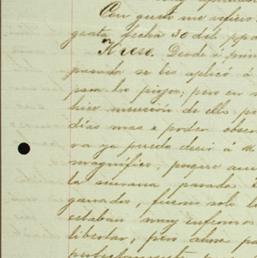 Con gusto me refiero
grata fecha 30 del ppdo
Kreso. Desde a prin
pasada se les aplicó á
para los piojos, pero en
hice mención de ella po
días mas a poder obser
va ya puedo decir á
magnífico, porque
la semana pasada
ganados, fueron solo
estaban muy enfermos
libertar, pero ahora
probablemente